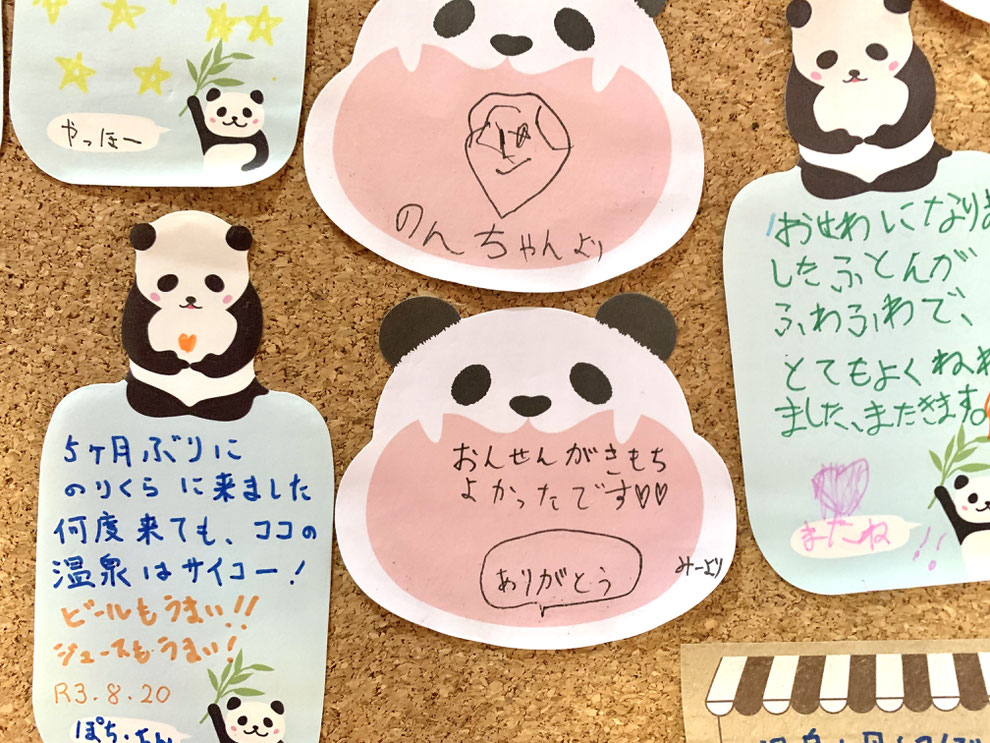 やっほー
のんちゃんより
おせわになりま
したふとんが
ふわふわで、
とてもよくねれ
ました、またきます。
またね
!!
5ヶ月ぶりに
のりくらに来ました
何度来ても、ココの
温泉はサイコー!
ビールもうまい!!
ジュースもうまい!
R3.8.20
ぽち・ちん
おんせんがきもち
よかったです♡♡
ありがとう
みーより